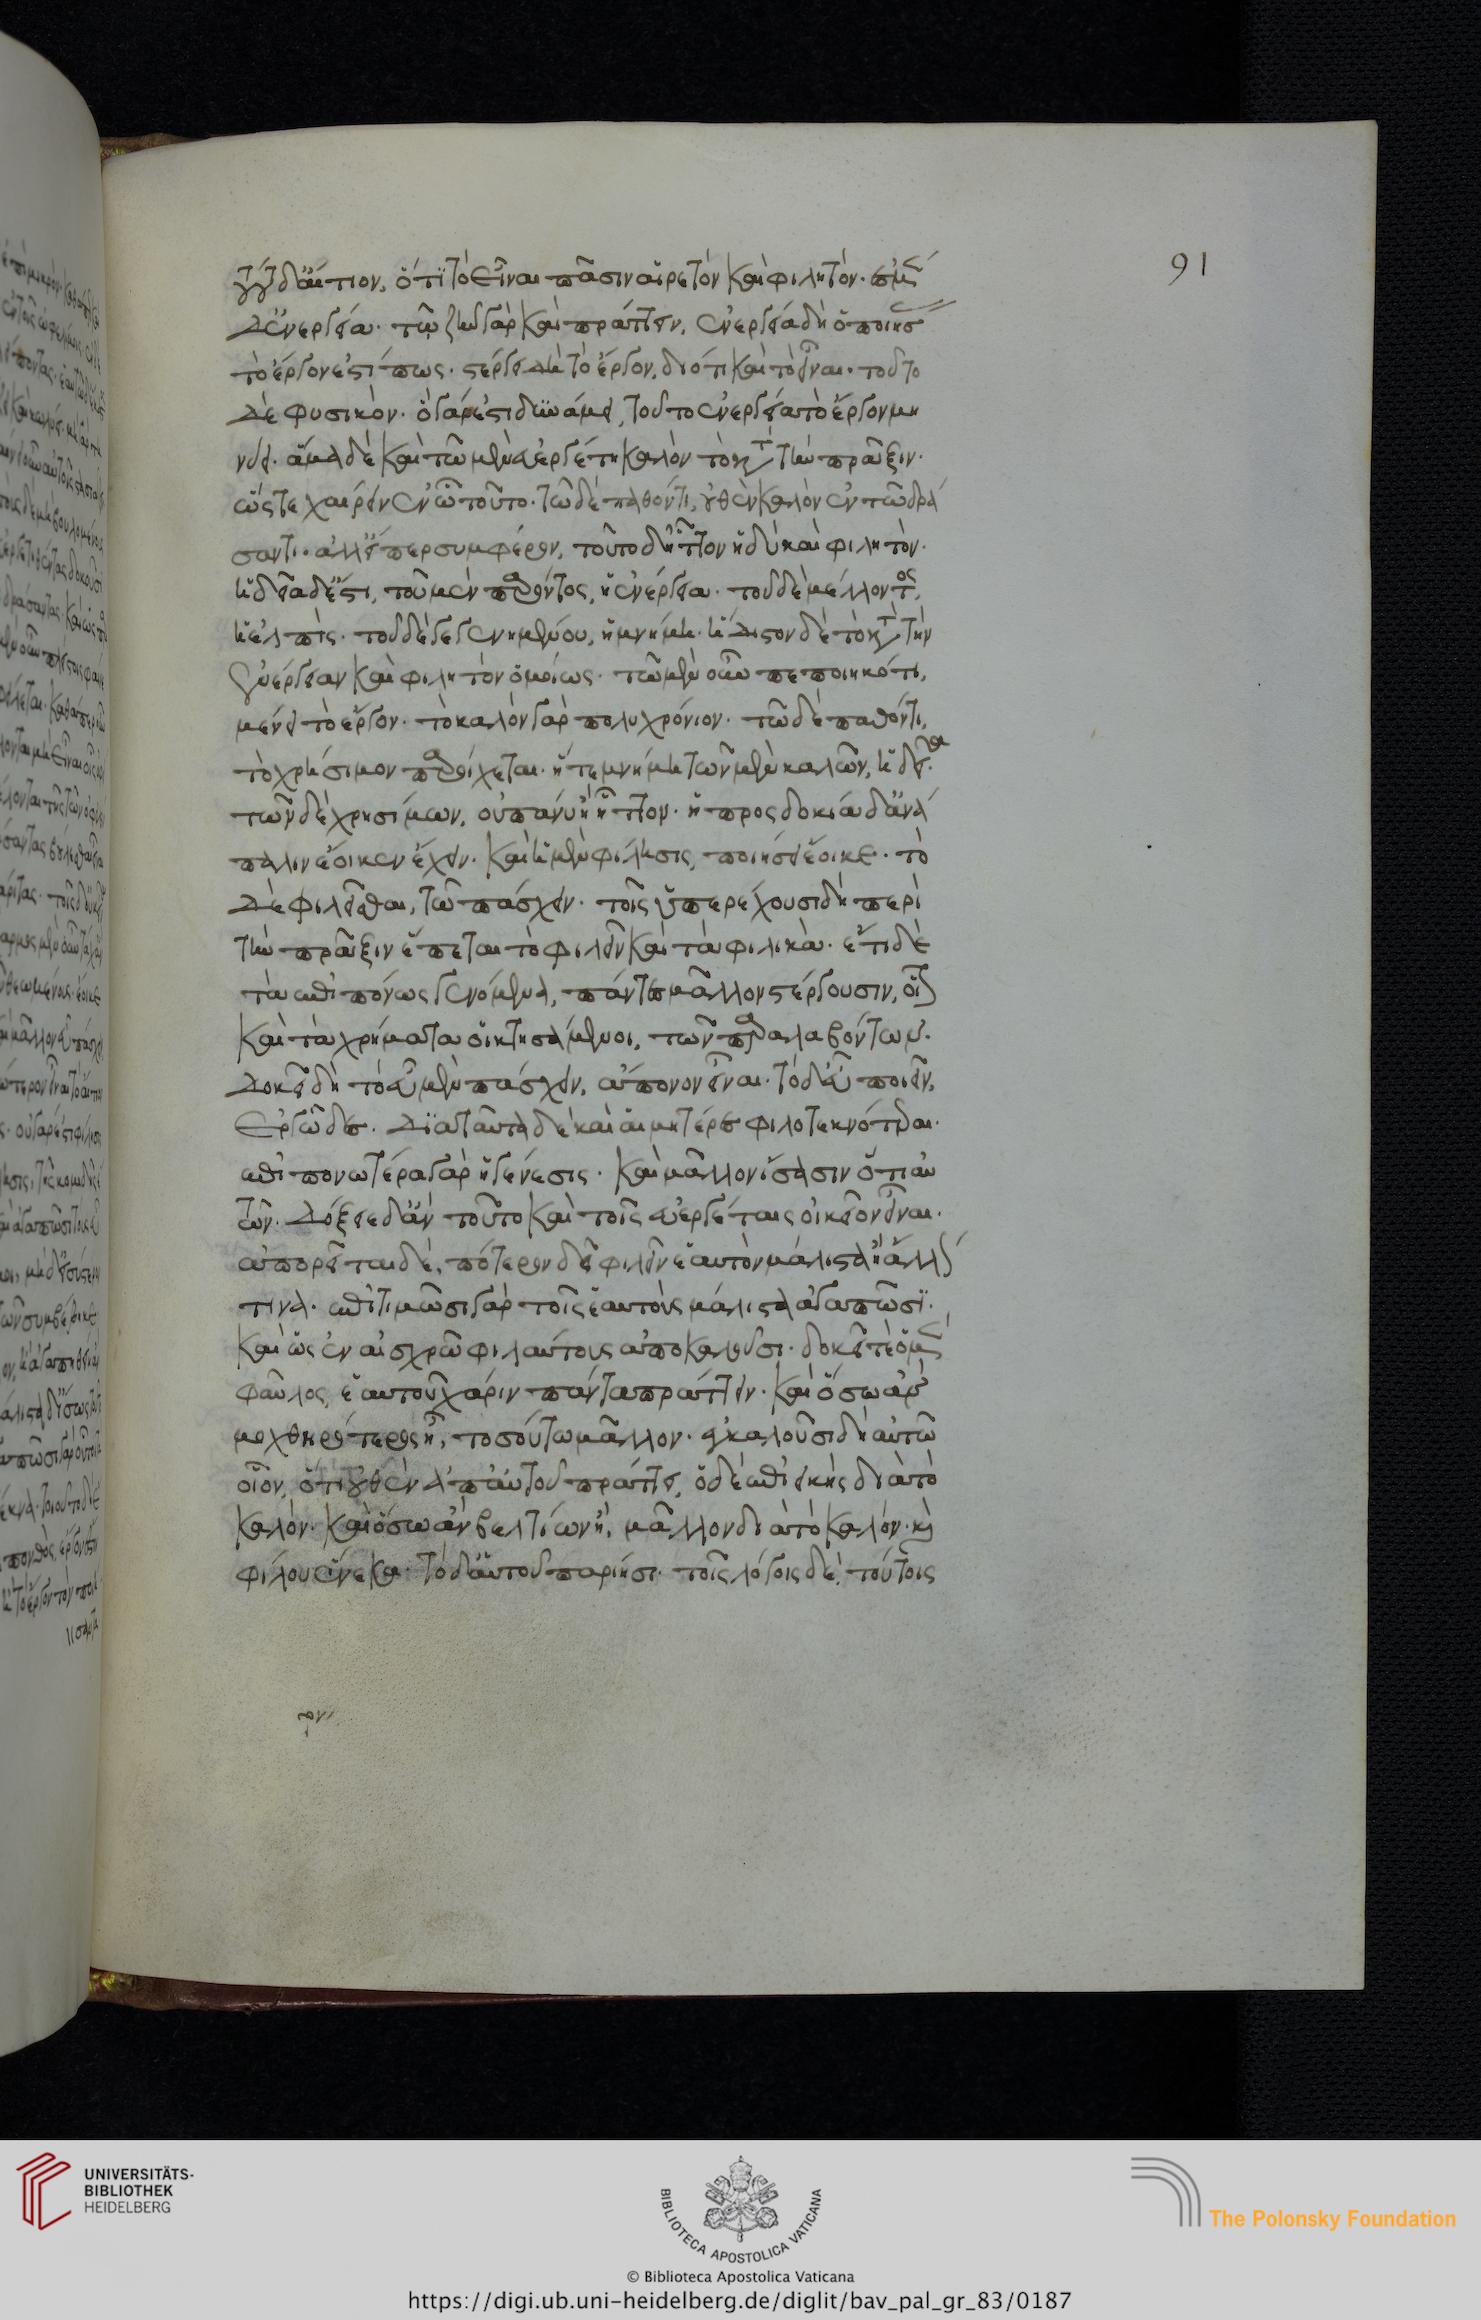 τούτου δ' αἴτιον, ὅτι τὸ εἶναι πᾶσιν αἱρετὸν καὶ φιλητόν. ἐσμὲν
δ' ἐνεργεία. τῶ ζῆν γὰρ καὶ πράττειν, ἐνεργεία δὴ ὁ ποιήσας
τὸ ἔργον ἐστί πως. στέργει δὴ τὸ ἔργον, διότι καὶ τὸ εἶναι. τοῦτο
δὲ φυσικὸν. ὃ γάρ ἐστι δυνάμει, τοῦτο ἐνεργεία τὸ ἔργον μη
νύει. ἅμα δὲ καὶ τῶ μὲν εὐεργέτη καλὸν τὸ κατὰ τὴν πρᾶξιν.
ὥστε χαίρειν ἐν ὧ τοῦτο. τῶ δὲ παθόντι, οὐθὲν καλὸν ἐν τῶ δρά
σαντι. ἀλλ' εἴπερ συμφέρον, τοῦτο δὴ ἧττον ἡδὺ καὶ φιλητόν.
ἡδεῖα δ' ἐστι, τοῦ μὲν παρόντος, ἡ ἐνέργεια. τοῦ δὲ μέλλοντος,
ἡ ἐλπίς. τοῦ δὲ γεγενημένου, ἡ μνήμη. ἥδιστον δὲ τὸ κατὰ τὴν
ἐνέργειαν καὶ φιλητὸν ὁμοίως. τῶ μὲν οὖν πεποιηκότι,
μένει τὸ ἔργον. τὸ καλὸν γὰρ πολυχρόνιον. τῶ δὲ παθόντι,
τὸ χρήσιμον παροίχεται. ἥ τε μνήμη τῶν μὲν καλῶν, ἡδεῖα.
τῶν δὲ χρησίμων, οὐ πάνυ ἢ ἧττον. ἡ προσδοκία δ' ἀνά
παλιν ἔοικεν ἔχειν. καὶ ἡ μὲν φίλησις, ποιήσει ἔοικε. τὸ
δὲ φιλεῖσθαι, τῶ πάσχειν. τοῖς ὑπερέχουσι δὴ περὶ
τὴν πρᾶξιν ἕπεται τὸ φιλεῖν καὶ τὰ φιλικά. ἔτι δὲ
τὰ ἐπιπόνως γενόμενα, πάντες μᾶλλον στέργουσιν, οἷον
καὶ τὰ χρήματα οἱ κτησάμενοι, τῶν παραλαβόντων.
δοκεῖ δὴ τὸ εὖ μὲν πάσχειν, ἄπονον εἶναι. τὸ δ' εὖ ποιεῖν,
ἐργῶδες. διὰ ταῦτα δὲ καὶ αἱ μητέρες φιλοτεκνότεραι.
ἐπιπονωτέρα γὰρ ἡ γένεσις. καὶ μᾶλλον ἴσασιν ὅτι αὐ
τῶν. δόξειε δ' ἂν τοῦτο καὶ τοῖς εὐεργέταις οἰκεῖον εἶναι.
ἀπορεῖται δὲ, πότερον δεῖ φιλεῖν ἑαυτὸν μάλιστα ἢ ἄλλον
τινά. ἐπιτιμῶσι γὰρ τοῖς ἑαυτοὺς μάλιστα ἀγαπῶσι.
καὶ ὡς ἐν αἰσχρῶ φιλαύτους ἀποκαλοῦσι. δοκεῖ τε ὁ μὲν
φαῦλος, ἑαυτοῦ χάριν πάντα πράττειν. καὶ ὅσω ἂν
μοχθηρότερος ἦ, τοσούτω μᾶλλον. ἐγκαλοῦσι δὴ αὐτῶ
οἷον, ὅτι οὐθὲν ἀπ' αὑτοῦ πράττει, ὁ δὲ ἐπιεικής διὰ τὸ
καλόν. καὶ ὅσω ἂν βελτίων ἦ, μᾶλλον διὰ τὸ καλόν. καὶ
φίλου ἕνεκα. τὸ δ' αὑτοῦ παρίησι. τοῖς λόγοις δὲ τούτοις
91
UNIVERSITÄTS-
BIBLIOTHEK
HEIDELBERG
BIBLIOTECA APOSTOLICA VATICANA
The Polonsky Foundation
© Biblioteca Apostolica Vaticana
https://digi.ub.uni-heidelberg.de/diglit/bav_pal_gr_83/0187